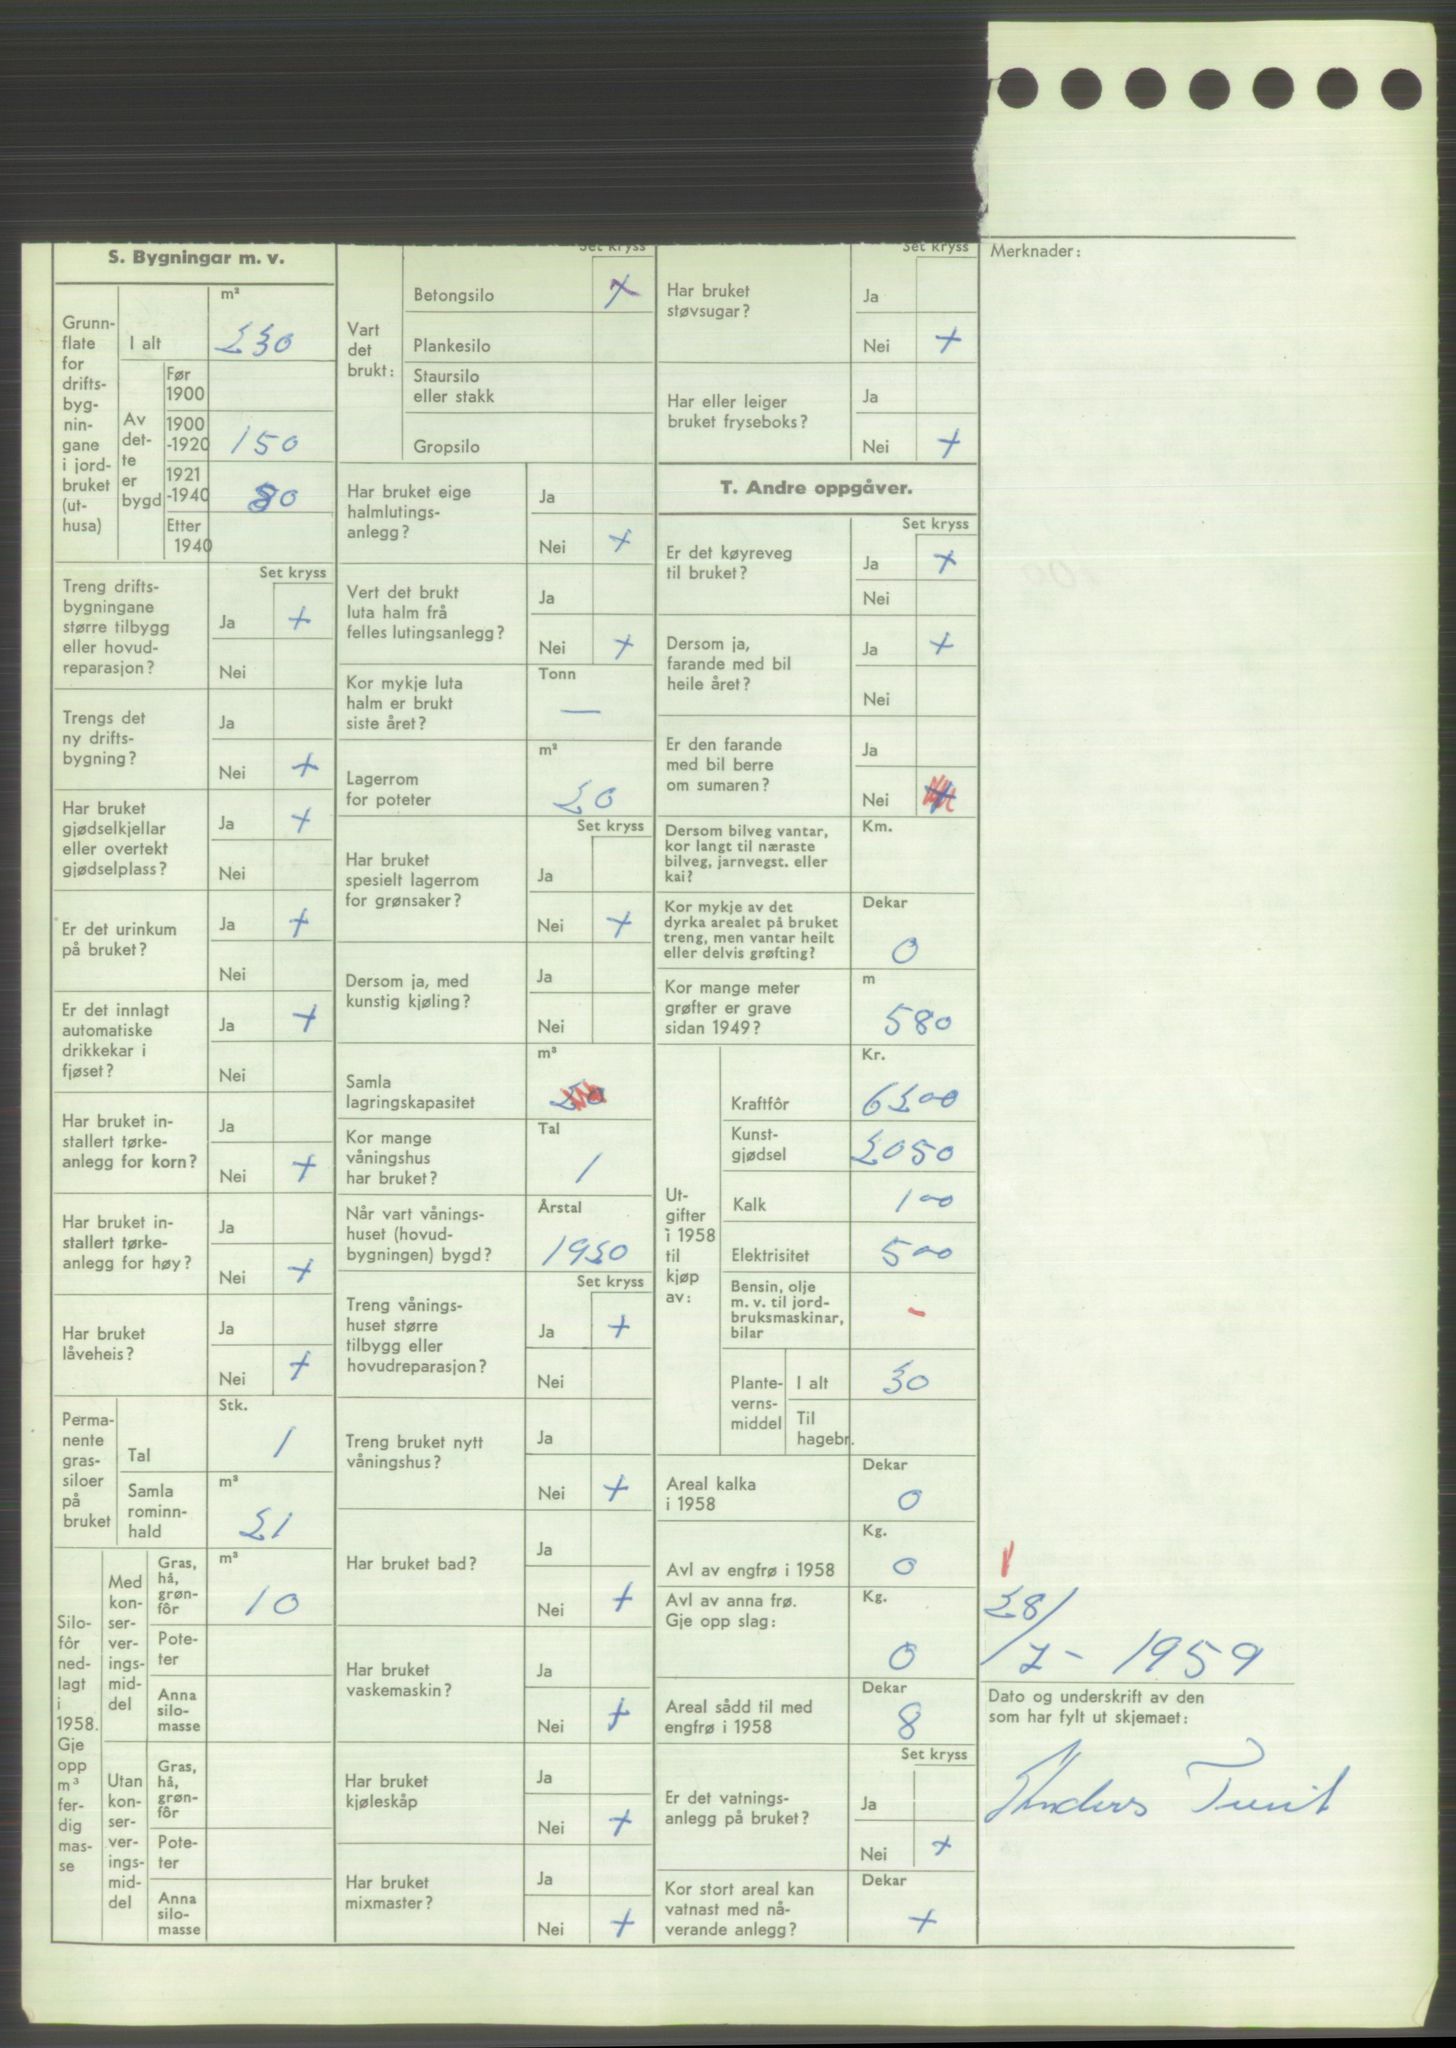 S. Bygningar m. v.
Grunn-
flate
for
drifts-
byg-
nin-
gane
i jord-
bruket
(ut-
husa)
I alt
m²
230
Av
det-
te
er
bygd
Før
1900
1900
-1920
150
1921
-1940
80
Etter
1940
Set kryss
Treng drifts-
bygningane
større tilbygg
eller hovud-
reparasjon?
Ja +
Nei
Trengs det
ny drifts-
bygning?
Ja
Nei +
Har bruket
gjødselkjellar
eller overtekt
gjødselplass?
Ja +
Nei
Er det urinkum
på bruket?
Ja +
Nei
Er det innlagt
automatiske
drikkekar i
fjøset?
Ja +
Nei
Har bruket in-
stallert tørke-
anlegg for korn?
Ja
Nei +
Har bruket in-
stallert tørke-
anlegg for høy?
Ja
Nei +
Har bruket
låveheis?
Ja
Nei +
Perma-
nente
gras-
siloer
på
bruket
Tal
Stk.
1
Samla
rominn-
hald
m³
21
Silo-
fôr
ned-
lagt
i
1958.
Gje
opp
m³
fer-
dig
mas-
se
Med
kon-
ser-
ver-
ings-
mid-
del
Gras,
hå,
grøn-
fôr
m³
10
Pote-
ter
Anna
silo-
masse
Utan
kon-
ser-
ver-
ings-
mid-
del
Gras,
hå,
grøn-
fôr
Pote-
ter
Anna
silo-
masse
Set kryss
Vart
det
brukt:
Betongsilo +
Plankesilo
Staursilo
eller stakk
Gropsilo
Har bruket eige
halmlutings-
anlegg?
Ja
Nei +
Vert det brukt
luta halm frå
felles lutingsanlegg?
Ja
Nei +
Kor mykje luta
halm er brukt
siste året?
Tonn
—
Lagerrom
for poteter
m²
20
Set kryss
Har bruket
spesielt lagerrom
for grønsaker?
Ja
Nei +
Dersom ja, med
kunstig kjøling?
Ja
Nei
Samla
lagringskapasitet
m³
20
Kor mange
våningshus
har bruket?
Tal
1
Når vart vånings-
huset (hovud-
bygningen) bygd?
Årstal
1920
Set kryss
Treng vånings-
huset større
tilbygg eller
hovudreparasjon?
Ja +
Nei
Treng bruket nytt
våningshus?
Ja
Nei +
Har bruket bad?
Ja
Nei +
Har bruket
vaskemaskin?
Ja
Nei +
Har bruket
kjøleskåp
Ja
Nei +
Har bruket
mixmaster?
Ja
Nei +
Set kryss
Har bruket
støvsugar?
Ja
Nei +
Har eller leiger
bruket fryseboks?
Ja
Nei +
T. Andre oppgåver.
Set kryss
Er det køyreveg
til bruket?
Ja +
Nei
Dersom ja,
farande med bil
heile året?
Ja +
Nei
Er den farande
med bil berre
om sumaren?
Ja
Nei +
Dersom bilveg vantar,
kor langt til næraste
bilveg, jarnvegst. eller
kai?
Km.
Kor mykje av det
dyrka arealet på bruket
treng, men vantar heilt
eller delvis grøfting?
Dekar
0
Kor mange meter
grøfter er grave
sidan 1949?
m
580
Ut-
gifter
i 1958
til
kjøp
av:
Kr.
Kraftfôr 6200
Kunst-
gjødsel 2050
Kalk 100
Elektrisitet 500
Bensin, olje
m. v. til jord-
bruksmaskinar,
bilar
-
Plante-
verns-
middel
I alt 30
Til
hagebr.
Areal kalka
i 1958
Dekar
0
Avl av engfrø i 1958
Kg.
0
Avl av anna frø.
Gje opp slag:
Kg.
0
Areal sådd til med
engfrø i 1958
Dekar
8
Set kryss
Er det vatnings-
anlegg på bruket?
Ja
Nei +
Kor stort areal kan
vatnast med nå-
verande anlegg?
Dekar
+
Merknader:
28/
/7 - 1959
Dato og underskrift av den
som har fylt ut skjemaet:
Anders Tveit